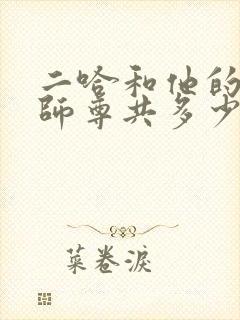 二哈和他的
師尊共多少
菜卷淚